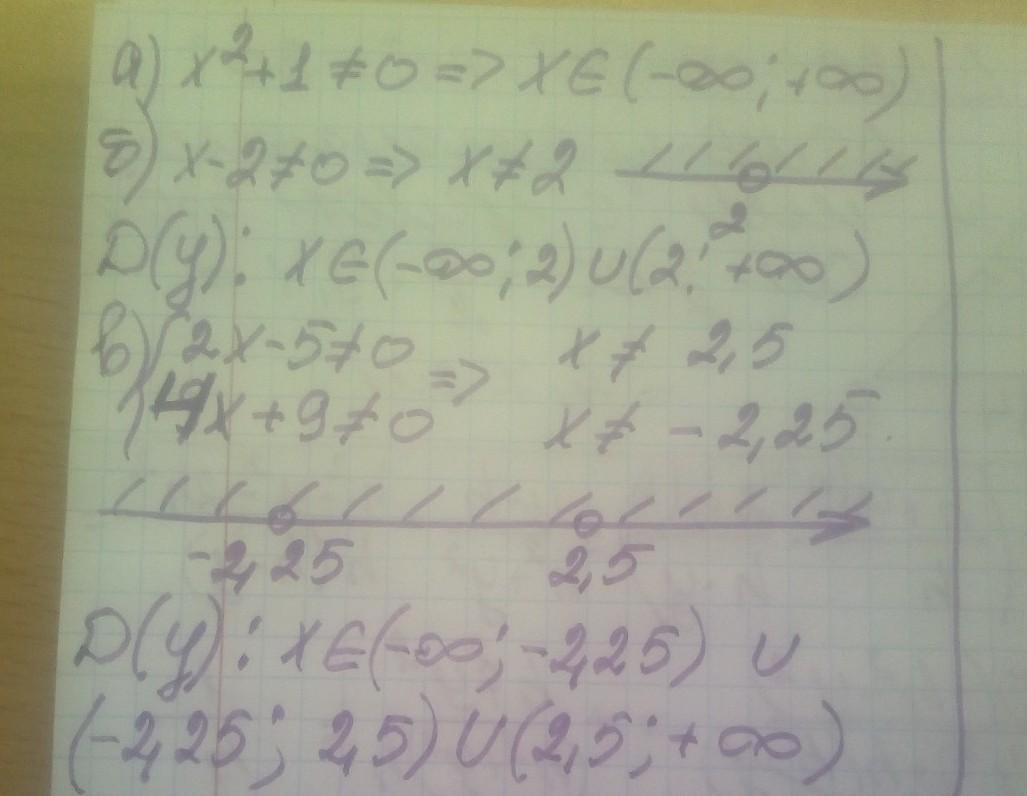 а) x²+1≠0 => x∈(-∞; +∞)
б) x-2≠0 => x≠2
2
D(y): x∈(-∞; 2)∪(2; +∞)
в) {2x-5≠0 => x≠ 2,5
4x+9≠0 x≠ -2,25
-2,25 2,5
D(y): x∈(-∞; -2,25) ∪
(-2,25; 2,5)∪(2,5; +∞)